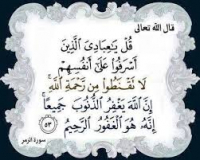 قال الله تعالى
قُلْ يَٰعِبَادِىَ ٱلَّذِينَ
أَسْرَفُوا۟ عَلَىٰٓ أَنفُسِهِمْ
لَا تَقْنَطُوا۟ مِن رَّحْمَةِ ٱللَّهِ
إِنَّ ٱللَّهَ يَغْفِرُ ٱلذُّنُوبَ جَمِيعًا
إِنَّهُۥ هُوَ ٱلْغَفُورُ ٱلرَّحِيمُ ٥٣
سورة الزمر